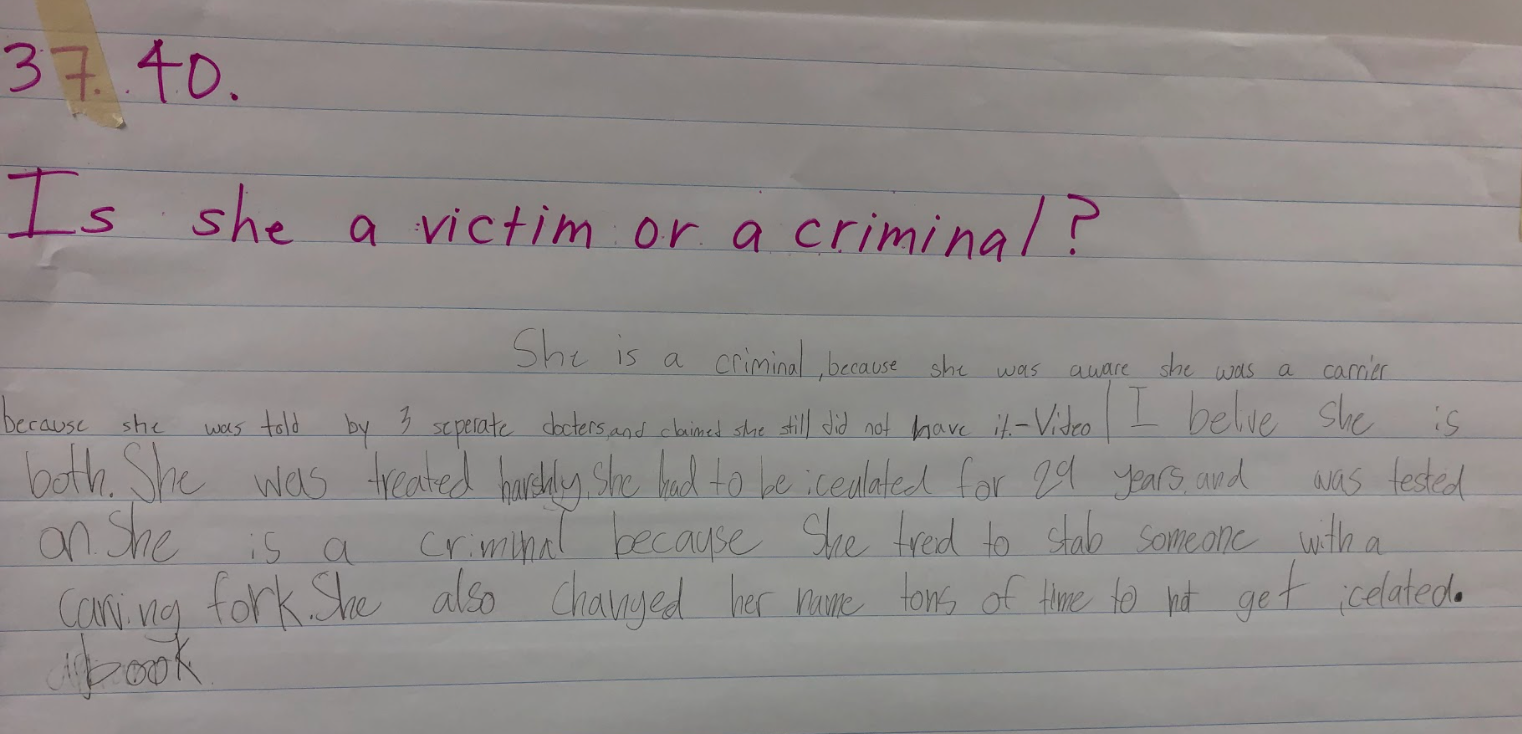 37. 40.
Is she a victim or a criminal?
She is a criminal, because she was aware she was a carrier
because she was told by 3 seperate docters, and claimed she still did not have it.-Video | I belive she is
both. She was treated harshly. She had to be iceulated for 29 years, and was tested
on. She is a criminal because She tred to stab someone with a
carving fork. She also changed her name tons of time to not get icelated.
book